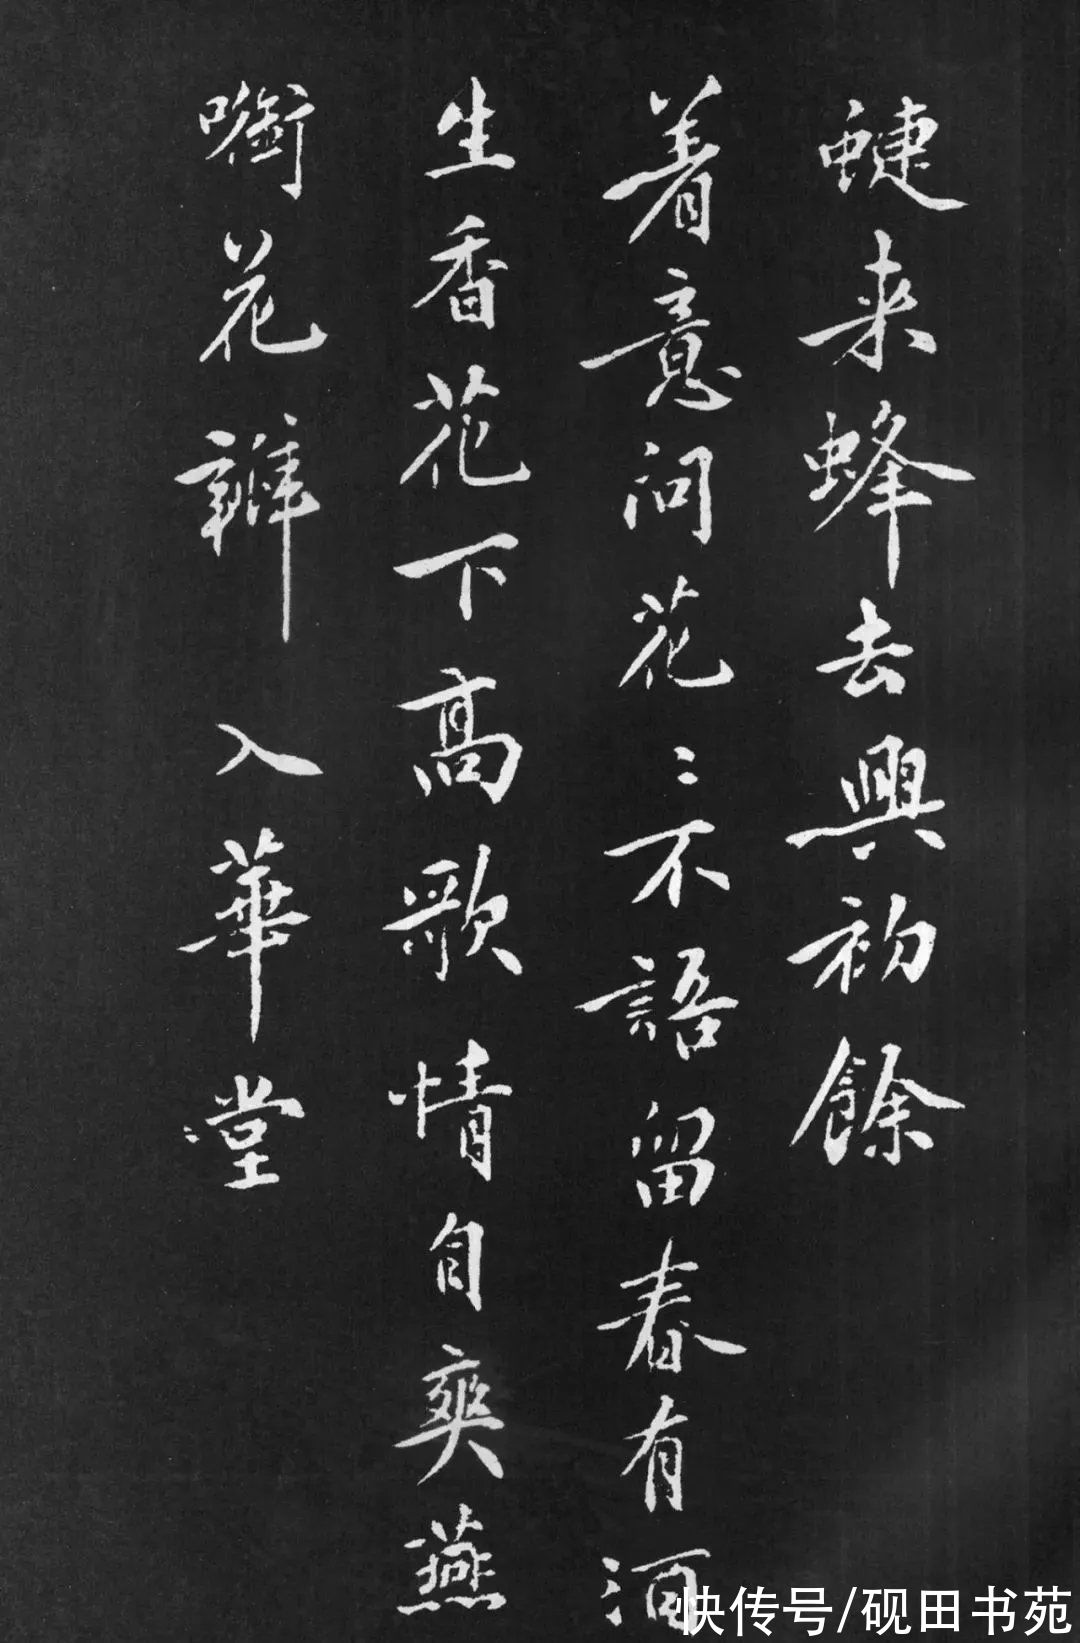 蜨来蜂去興初餘
着意问花〻不語留春有酒
生香花下高歌情自爽燕
啣花瓣入華堂
快传号/砚田书苑